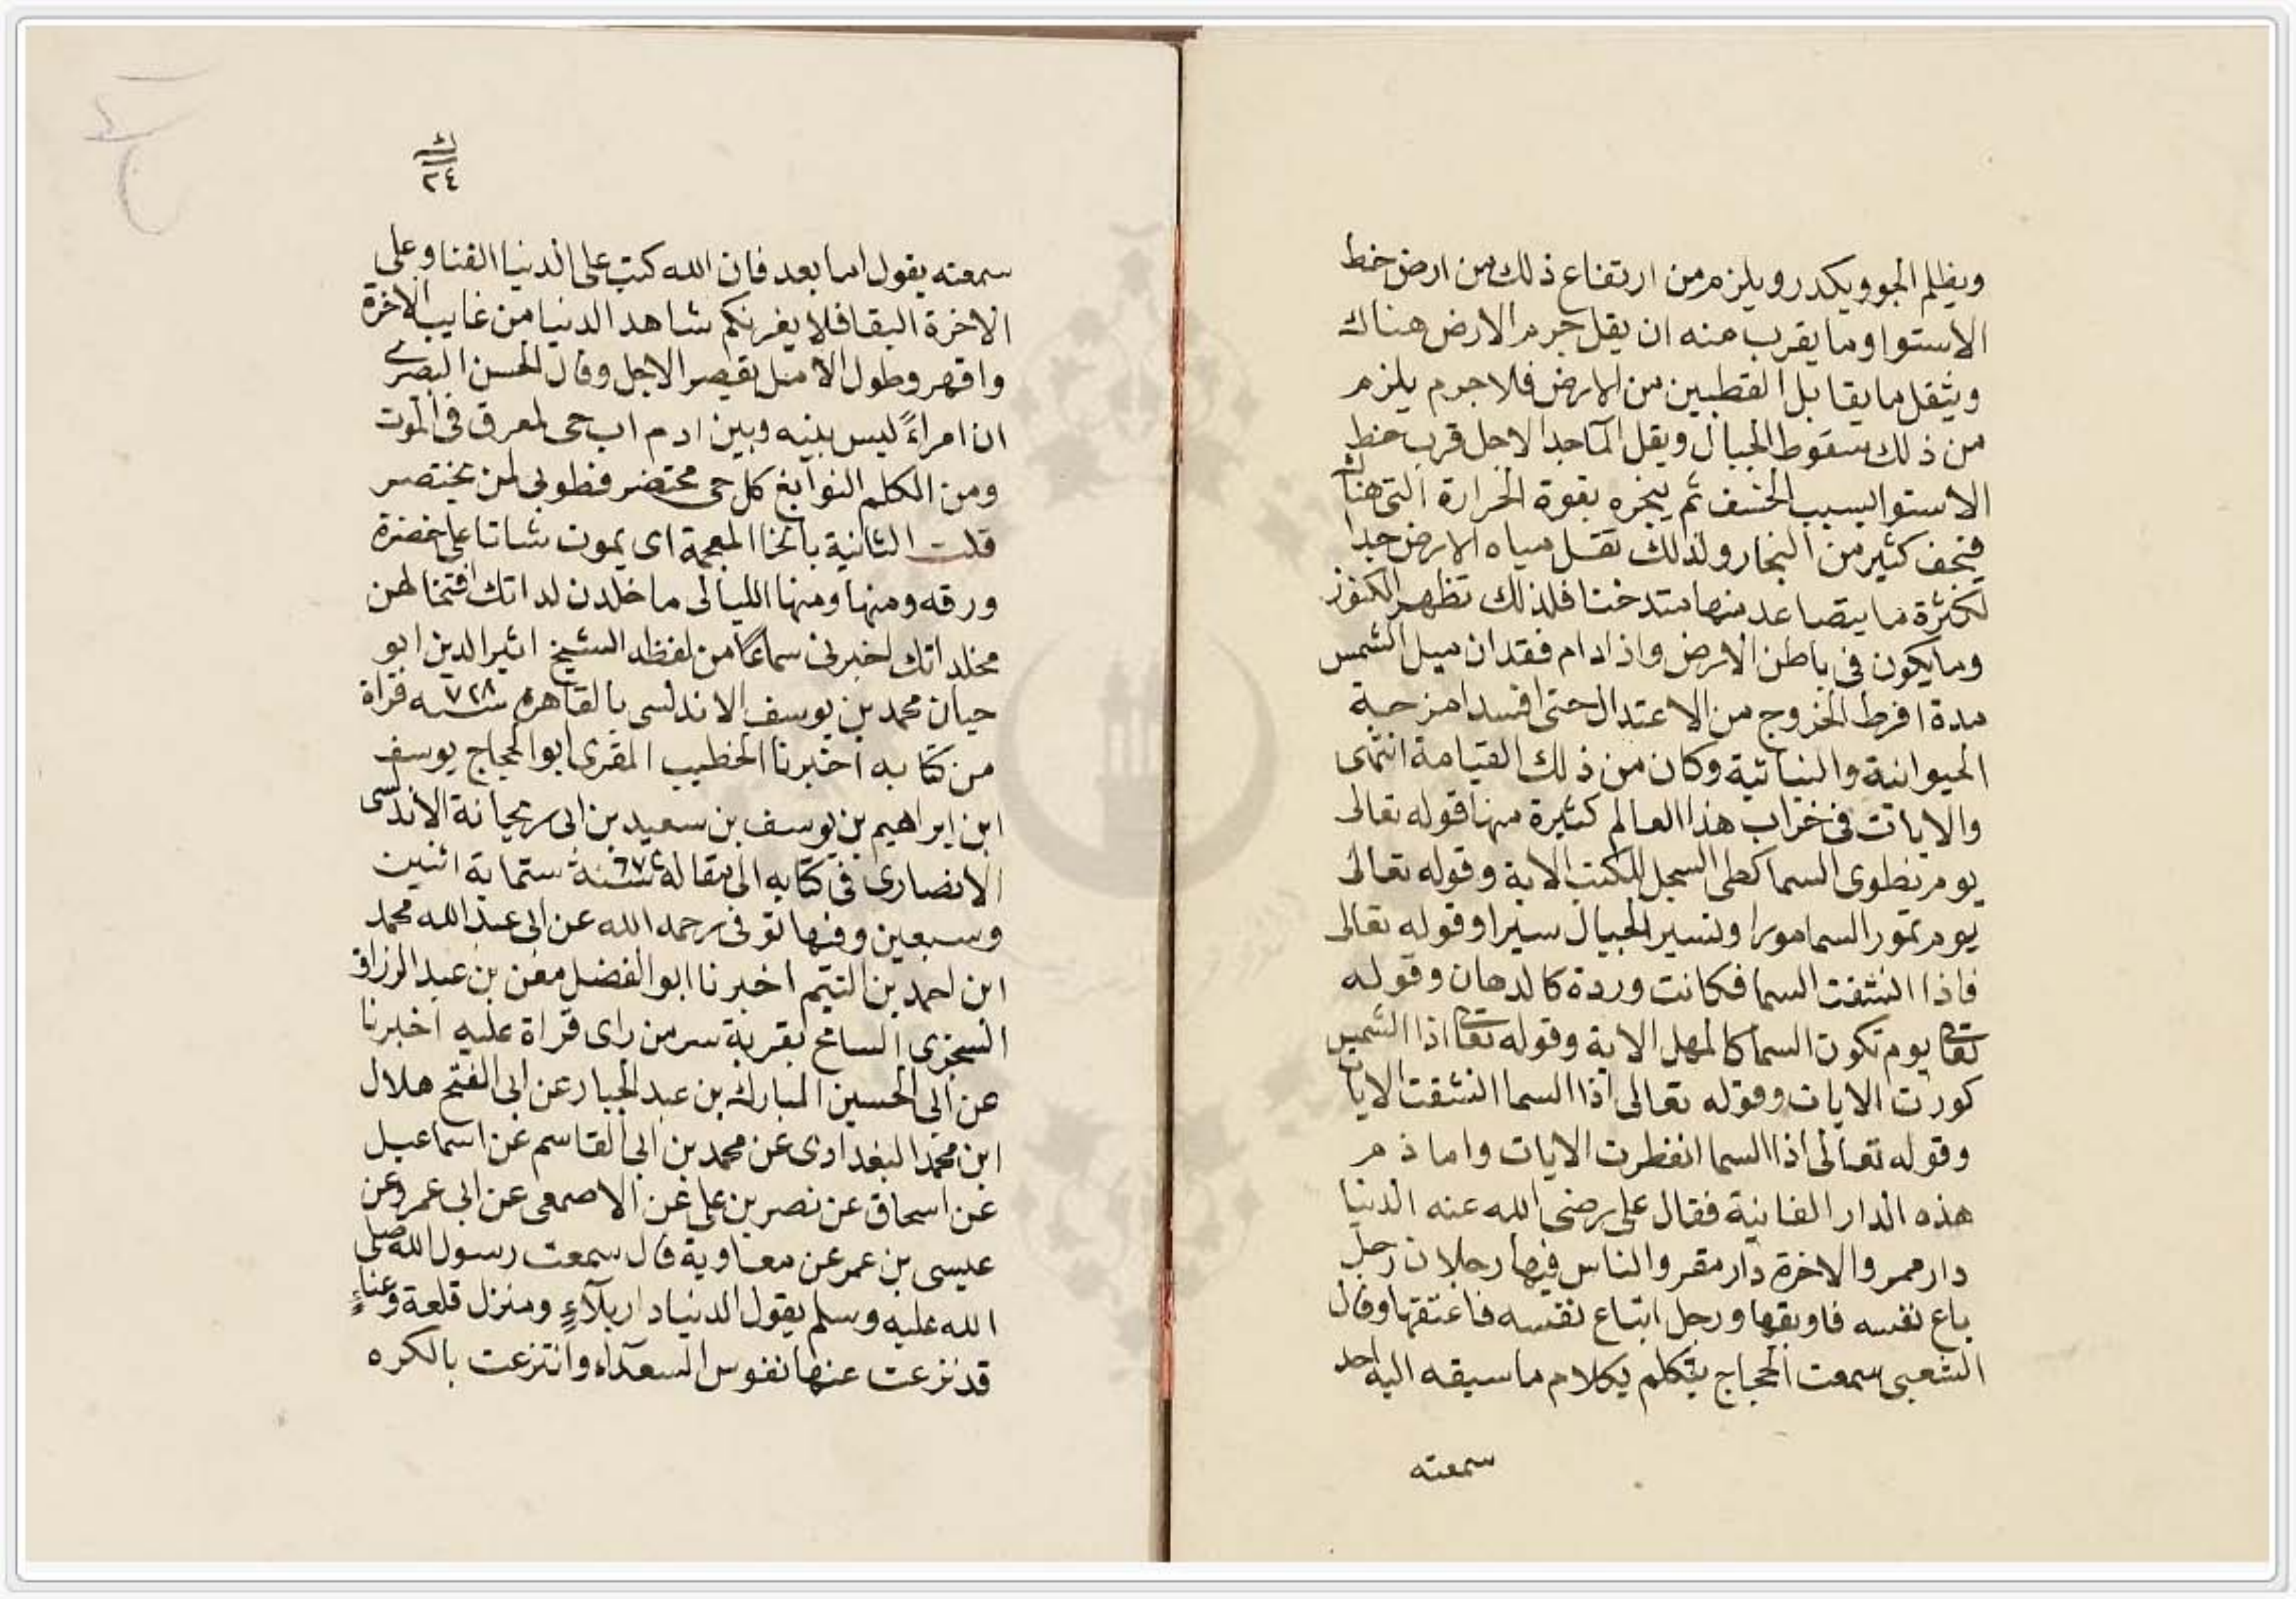 ويظلم الجو ويكدر ويلزم من ارتفاع ذلك من ارض خط
الاستوا وما يقرب منه ان يقل جرم الارض هناك
ويثقل ما يقابل القطبين من الارض فلا جرم يلزم
من ذلك سقوط الجبال ويقل الماجدا لاجل قرب خط
الاستوا بسبب الخسف ثم يبخره بقوة الحرارة التى هناك
فيخف كثير من البخار ولذلك تقل مياه الارض جدا
لكثرة ما يتصاعد منها متدخنا فلذلك تظهر الكنوز
وما يكون فى باطن الارض واذا دام فقدان ميل الشمس
مدة افرط الخروج من الاعتدال حتى افسد امزجة
الحيوانية والنباتية وكان من ذلك القيامة انتهى
والايات فى خراب هذا العالم كثيرة منها قوله تعالى
يوم نطوى السما كطى السجل للكتب الاية وقوله تعالى
يوم تمور السما مورا وتسير الجبال سيرا وقوله تعالى
فاذا انشقت السما فكانت وردة كالدهان وقوله
تعالى يوم تكون السما كالمهل الاية وقوله تعالى اذا الشمس
كورت الايات وقوله تعالى اذا السما انشقت الايات
وقوله تعالى اذا السما انفطرت الايات واما ذم
هذه الدار الفانية فقال على رضى الله عنه الدنيا
دار ممر والاخرة دار مقر والناس فيها رجلان رجل
باع نفسه فاوبقها ورجل ابتاع نفسه فاعتقها وقال
الشعبى سمعت الحجاج يتكلم بكلام ما سبقه اليه احد
سمعته
ك
٢٤
سمعته يقول اما بعد فان الله كتب على الدنيا الفنا وعلى
الاخرة البقا فلا يغرنكم شاهد الدنيا من غايب الاخرة
واقهروطول الامل بقصر الاجل وقال الحسن البصرى
ان امراءً ليس بينه وبين ادم اب حى لمعرق فى الموت
ومن الكلم النوابغ كل حى محتضر فطوبى لمن يختضر
قلت الثانية بالخا المعجمة اى يموت شاتا على خضرة
ورقه ومنها ومنها الليالى ما خلدن لداتك افتخالهن
مخلداتك اخبرنى سماعا من لفظه الشيخ اثير الدين ابو
حيان محمد بن يوسف الاندلسى بالقاهره سنه ٧٢٨ قراة
من كتابه اخبرنا الخطيب المقرى ابو الحجاج يوسف
ابن ابراهيم بن يوسف بن سعيد بن ابى ريحانة الاندلسى
الانصارى فى كتابه الى بمقاله سنة ٦٧٢ ستماية اثنين
وسبعين وفيها توفى رحمه الله عن ابى عبد الله محمد
ابن احمد بن اليتيم اخبرنا ابو الفضل مغن بن عبد الرزاق
السجزى السامخ بقرية سر من راى قراة عليه اخبرنا
عن ابى الحسين المبارك بن عبد الجبار عن ابى الفتح هلال
ابن محمد البغدادى عن محمد بن ابى القاسم عن اسماعيل
عن اسحاق عن نصر بن على عن الاصمعى عن ابى عمرو عن
عيسى بن عمر عن معاوية قال سمعت رسول الله صلى
الله عليه وسلم يقول الدنيا دار بلآءٍ ومنزل قلعة وعناءٍ
قد نزعت عنها نفوس السعدآء وانتزعت بالكره